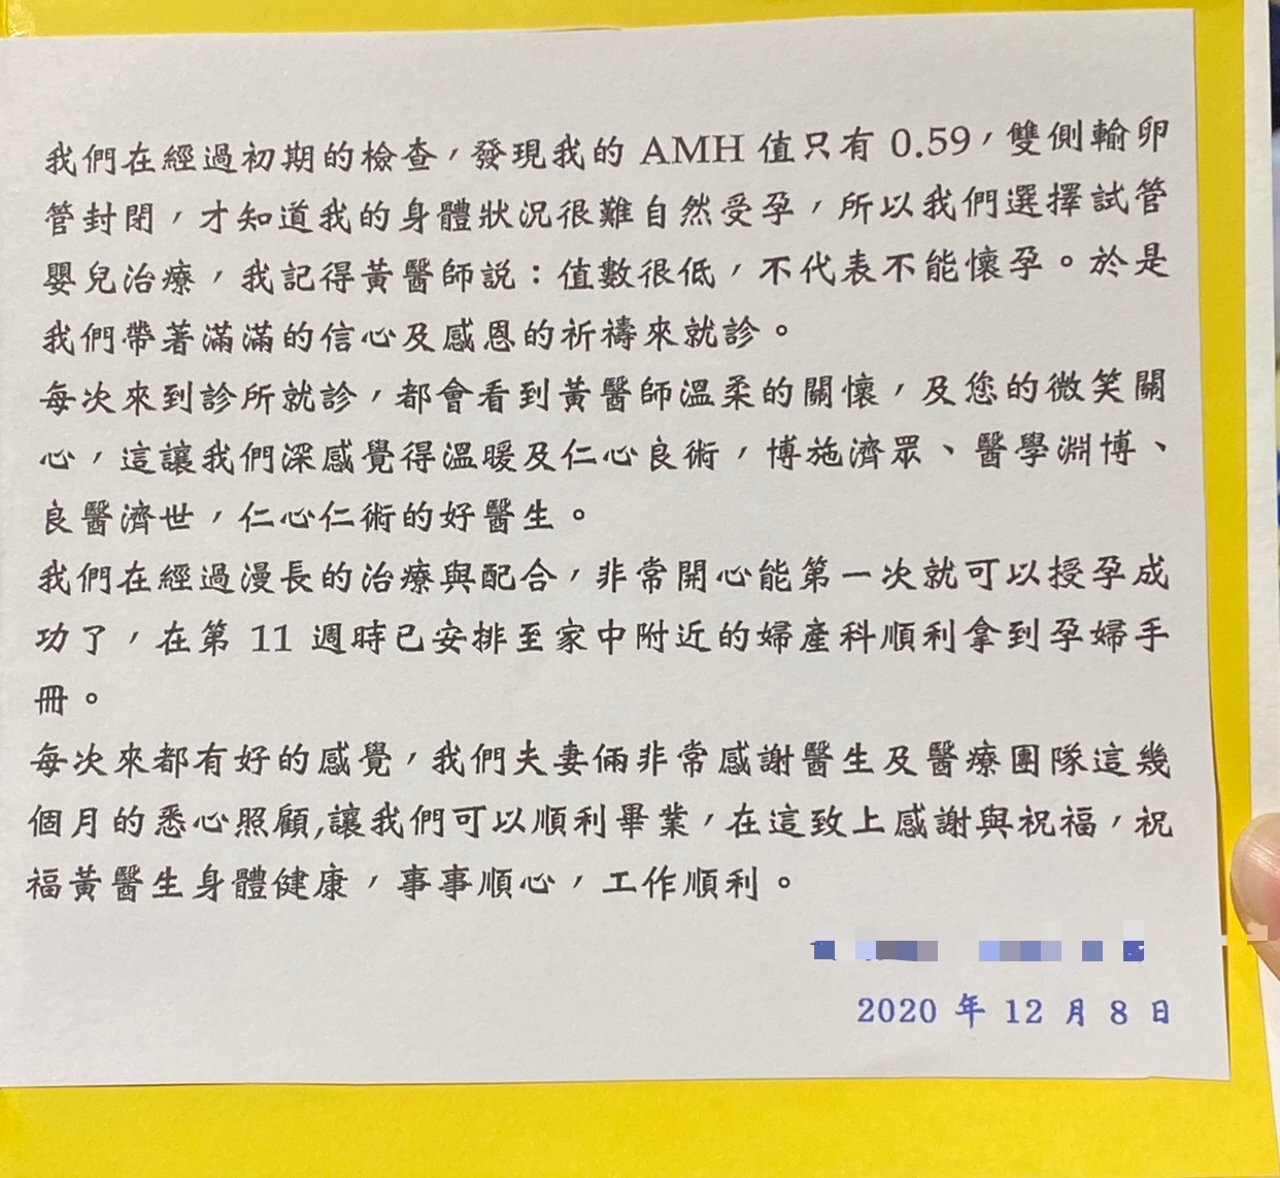 我們在經過初期的檢查，發現我的 AMH 值只有 0.59，雙側輸卵
管封閉，才知道我的身體狀況很難自然受孕，所以我們選擇試管
嬰兒治療，我記得黃醫師說：值數很低，不代表不能懷孕。於是
我們帶著滿滿的信心及感恩的祈禱來就診。
每次來到診所就診，都會看到黃醫師溫柔的關懷，及您的微笑關
心，這讓我們深感覺得溫暖及仁心良術，博施濟眾、醫學淵博、
良醫濟世，仁心仁術的好醫生。
我們在經過漫長的治療與配合，非常開心能第一次就可以授孕成
功了，在第 11 週時已安排至家中附近的婦產科順利拿到孕婦手
冊。
每次來都有好的感覺，我們夫妻倆非常感謝醫生及醫療團隊這幾
個月的悉心照顧,讓我們可以順利畢業，在這致上感謝與祝福，祝
福黃醫生身體健康，事事順心，工作順利。
2020 年 12 月 8 日